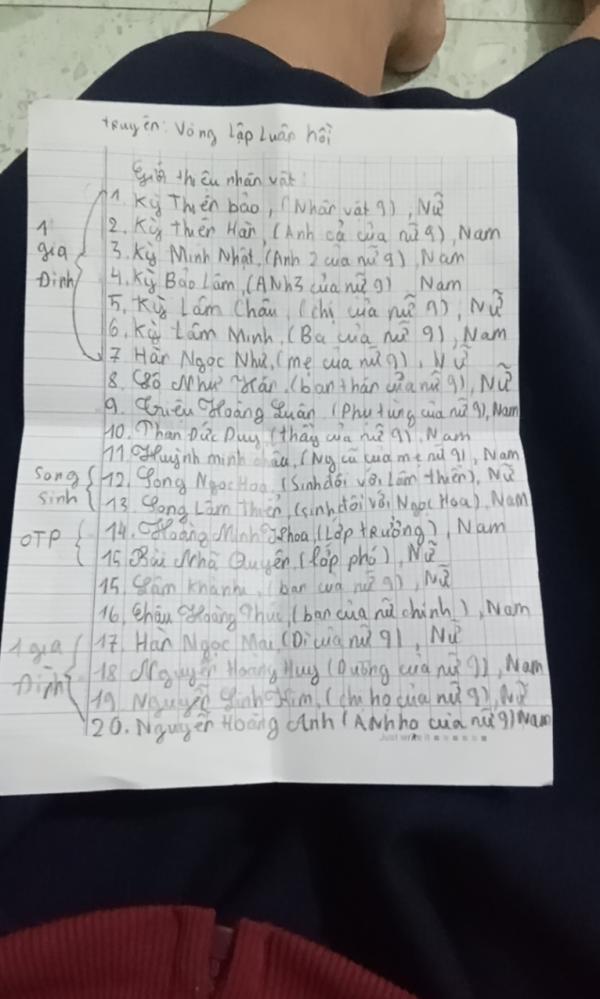 truyện: Vòng lặp Luân hồi
Giới thiệu nhân vật:
1 gia Đình
1. Kỳ Thiên bảo, (Nhân vật 9), Nữ
2. Kỳ thiên Hàn, (Anh cả của nữ 9), Nam
3. Kỳ Minh Nhật, (Anh 2 của nữ 9), Nam
4. Kỳ Bảo Lâm, (ANh3 của nữ 9) Nam
5. Kỳ Lâm Châu, (chị của nữ 9), Nữ
6. Kỳ Lâm Minh, (Ba của nữ 9), Nam
7 Hàn Ngọc Như, (mẹ của nữ 9), Nữ
8. Như Hán, (bạn thân của nữ 9), Nữ
9. Triệu Hoàng Quân, (Phụ tùng của nữ 9), Nam
10. Thân Đức Duy, (thầy của nữ 9), Nam
11. Huỳnh minh châu, (Ng cũ của mẹ nữ 9), Nam
Song sinh
12. Song Ngọc Hoa, (Sinh đôi với Lâm thiên), Nữ
13. Song Lâm Thiên, (sinh đôi với Ngọc Hoa), Nam
OTP
14. Hoàng Minh Khoa, (Lớp trưởng), Nam
15. Bùi Nhã Quyên, (lớp phó), Nữ
15. Lâm Khánh, (bạn của nữ 9), Nữ
16. Châu Hoàng Phúc, (bạn của nữ chính), Nam
1 gia Đình
17. Hàn Ngọc Mai, (Dì của nữ 9), Nữ
18 Nguyễn Hoàng Huy (Dượng của nữ 9), Nam
19. Nguyễn Linh Kim, (chị họ của nữ 9), Nữ
20. Nguyễn Hoàng Anh (ANh họ của nữ 9) Nam
Just write it